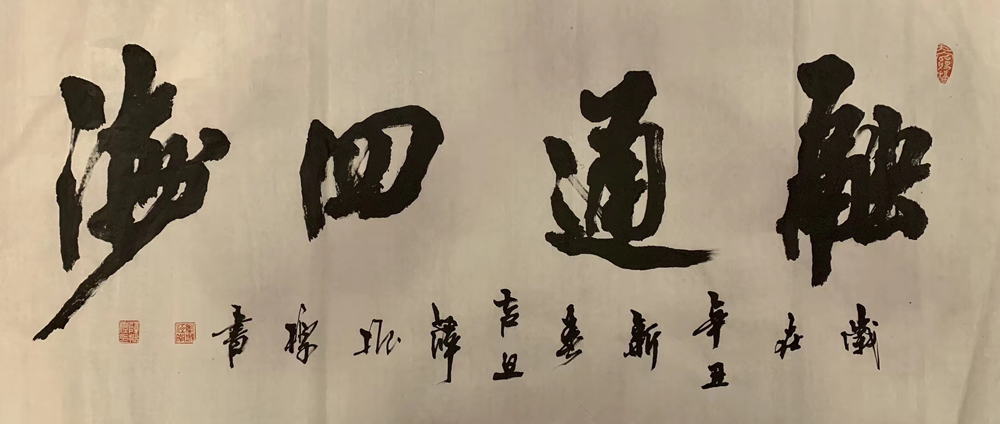 融通四海
歲在辛丑新春吉旦薛振擇書